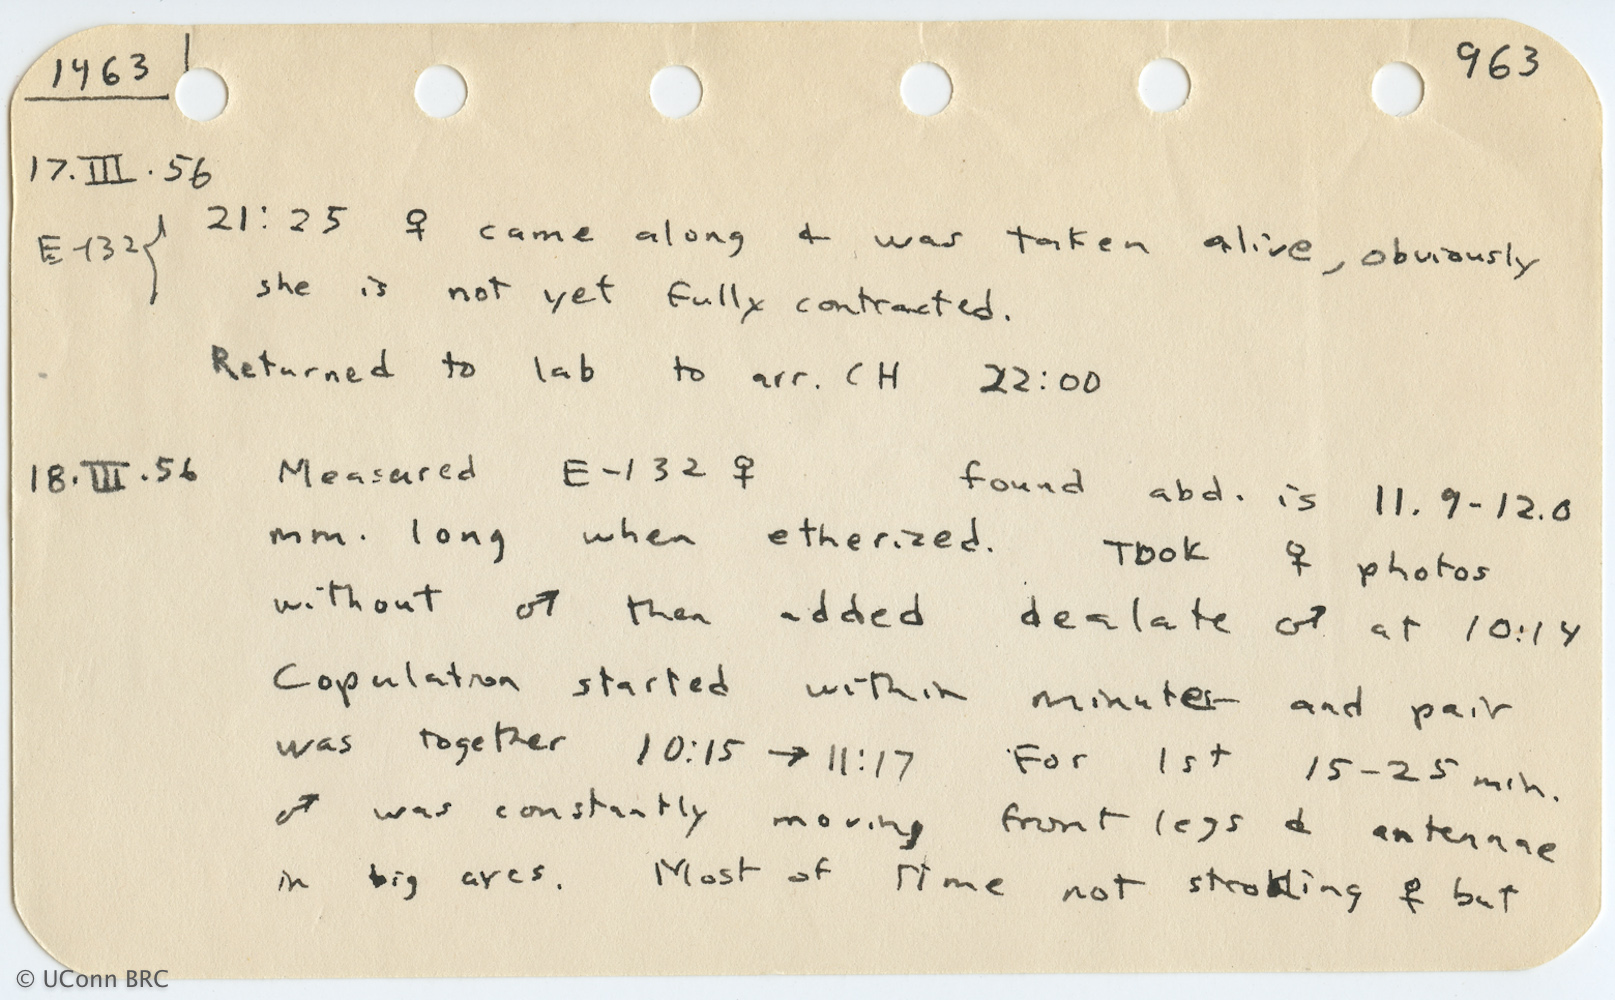 1463 963
17.III.56
E-132 } 21:25 ♀ came along & was taken alive, obviously
she is not yet fully contracted.
Returned to lab to arr. CH 22:00
18.III.56 Measured E-132 ♀ found abd. is 11.9-12.0
mm. long when etherized. Took ♀ photos
without ♂ then added dealate ♂ at 10:14
Copulation started within minutes and pair
was together 10:15 → 11:17 For 1st 15-25 min.
♂ was constantly moving front legs & antennae
in big arcs. Most of time not stroking ♀ but
© UConn BRC